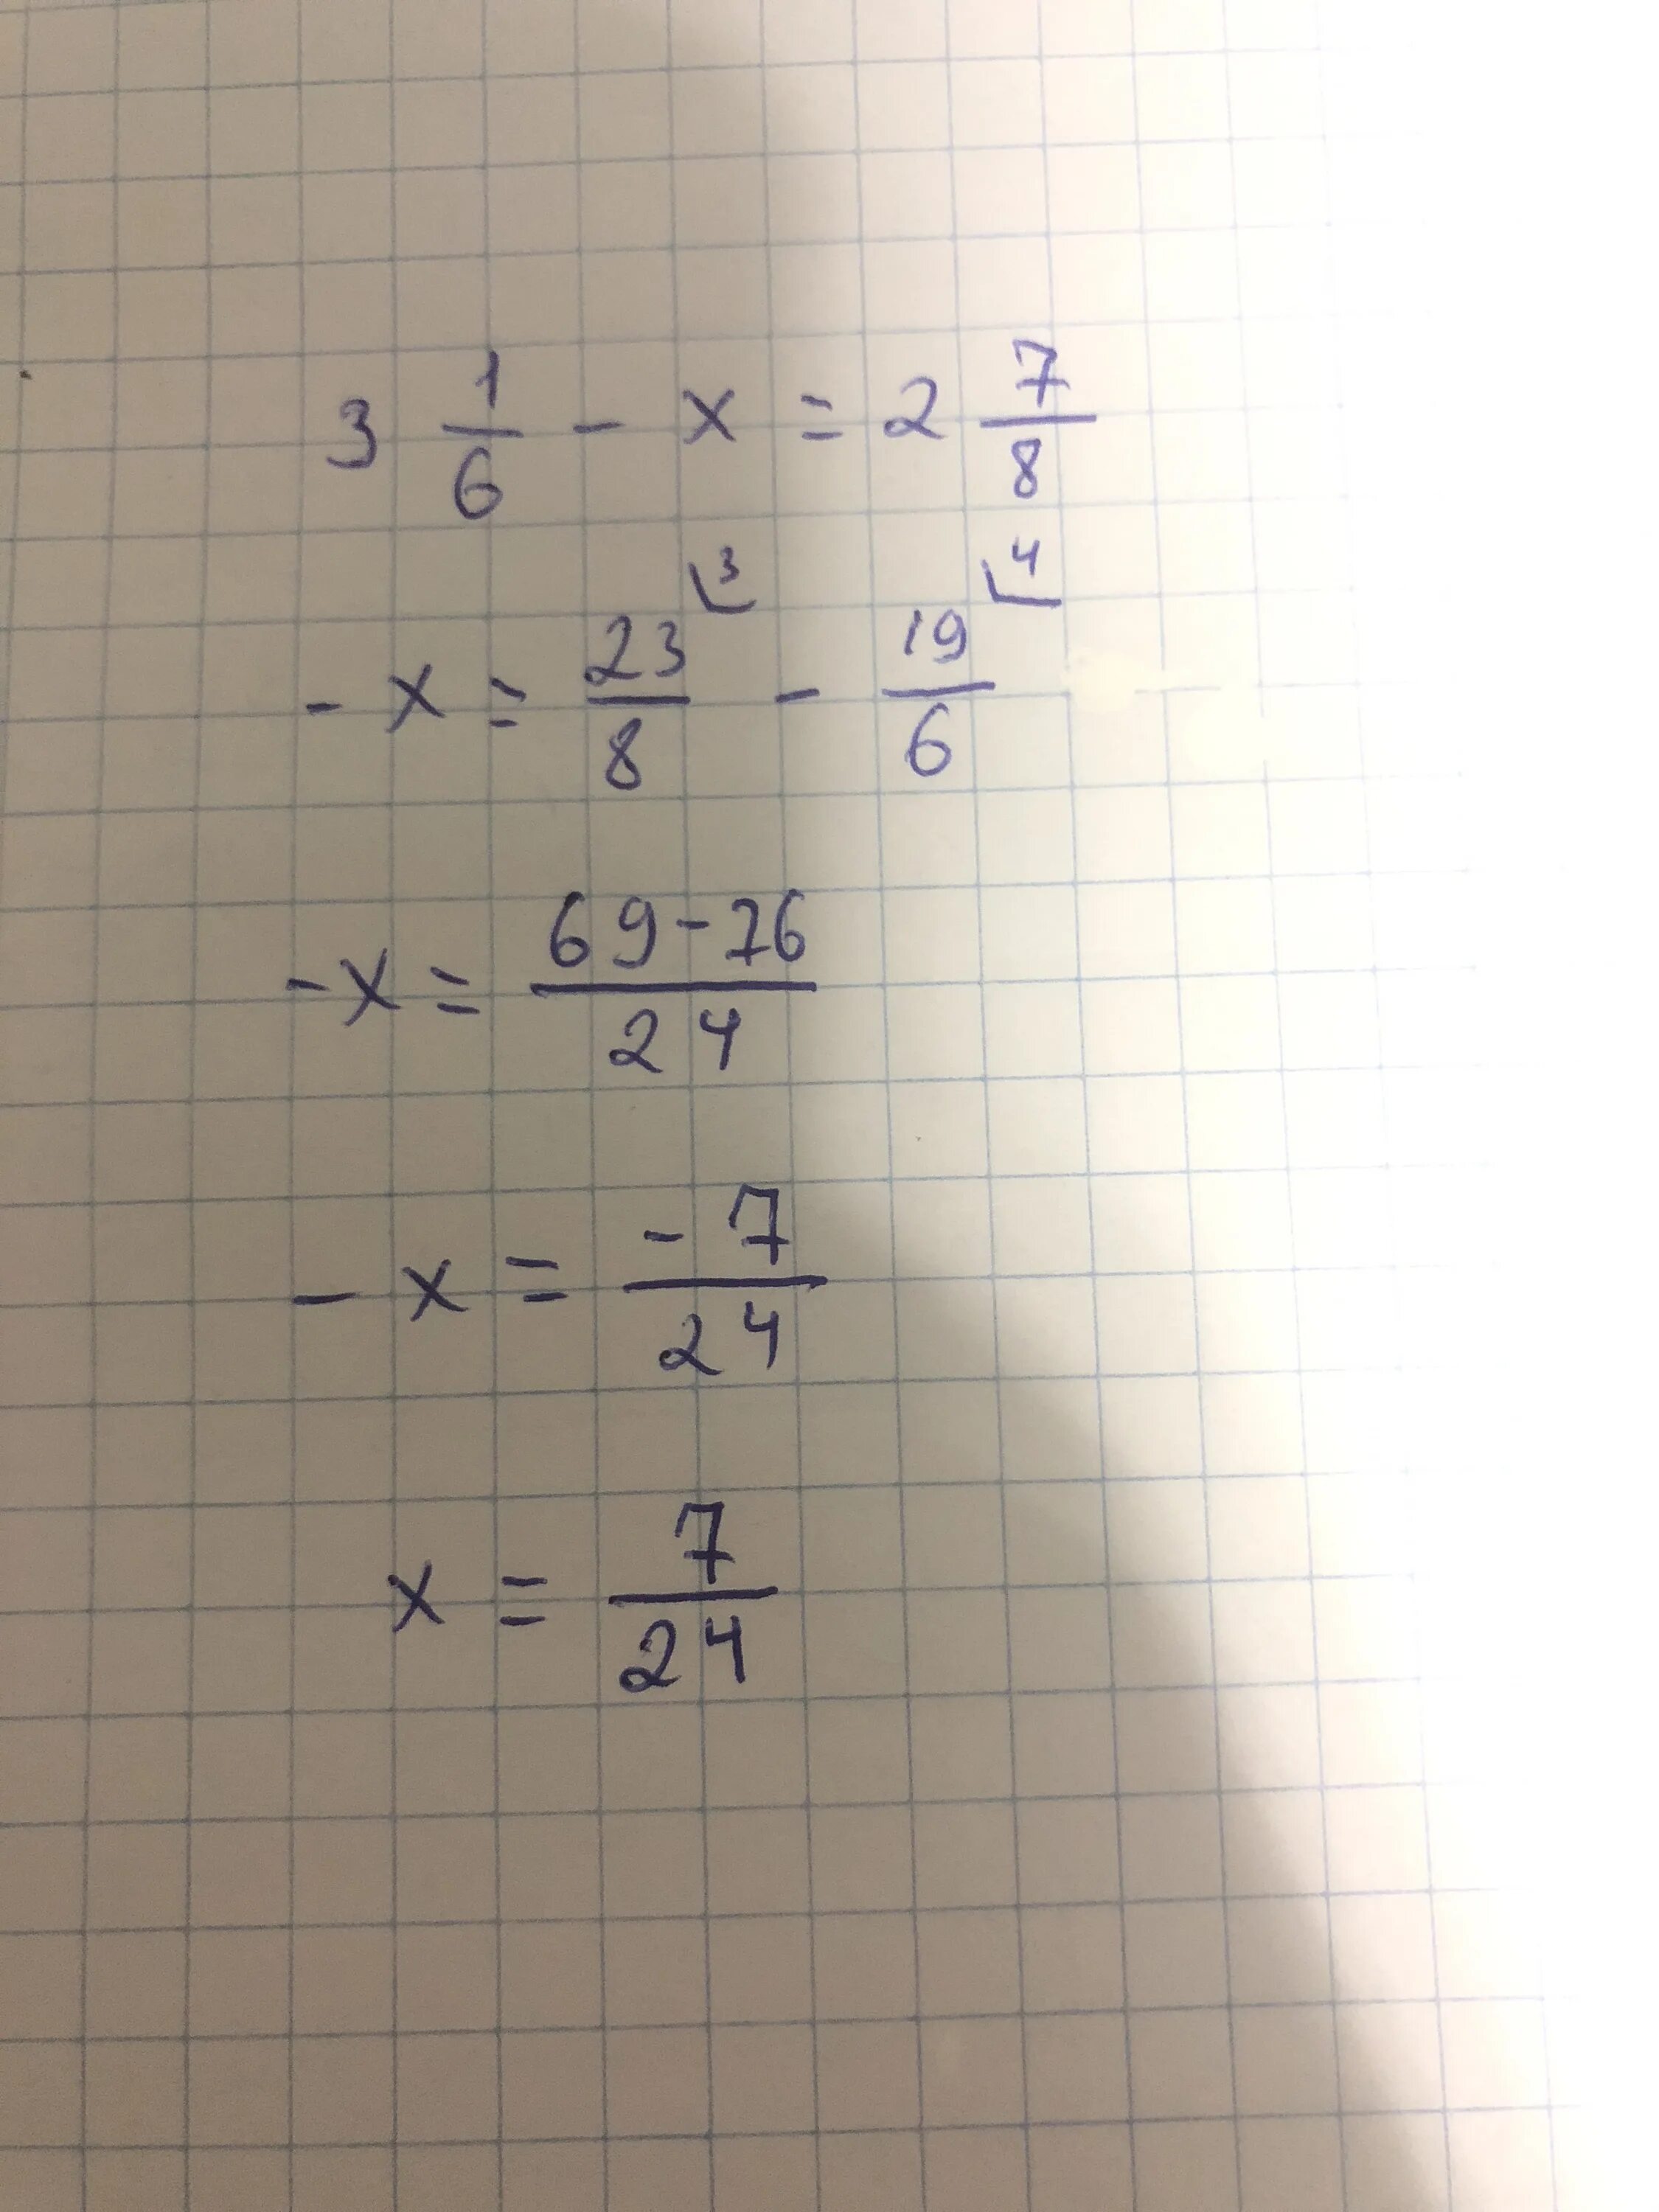 3 1/6 - x = 2 7/8
- x = 23/8 ⌊3 - 19/6 ⌊4
-x = 69-76/24
- x = -7/24
x = 7/24